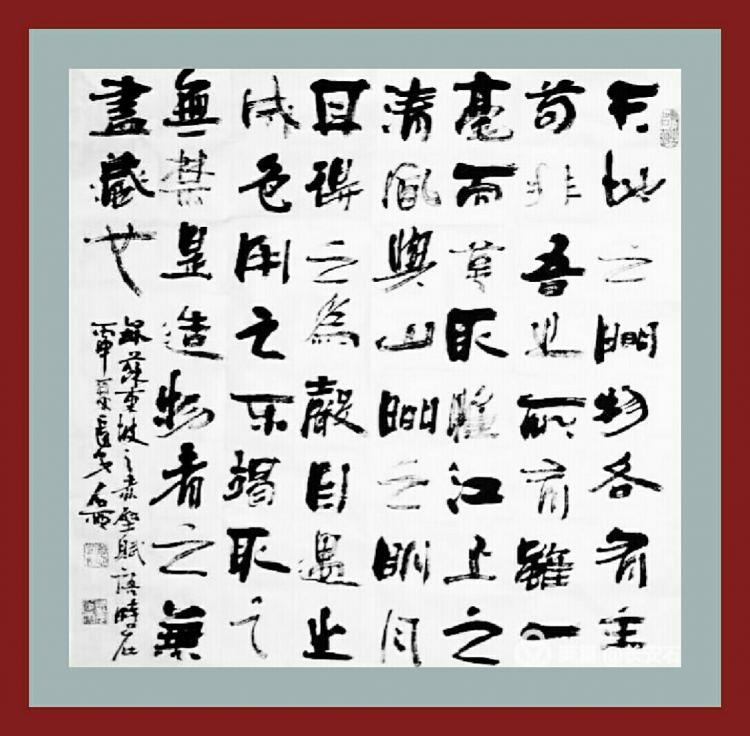 天地之間物各有主
苟非吾之所有雖一
毫而莫取惟江上之
清風與山間之明月
耳得之為聲目遇之
成色用之不竭取之
無禁是造物者之無
盡藏也
録蘇東坡之赤壁賦語時在
丙申夏長安石